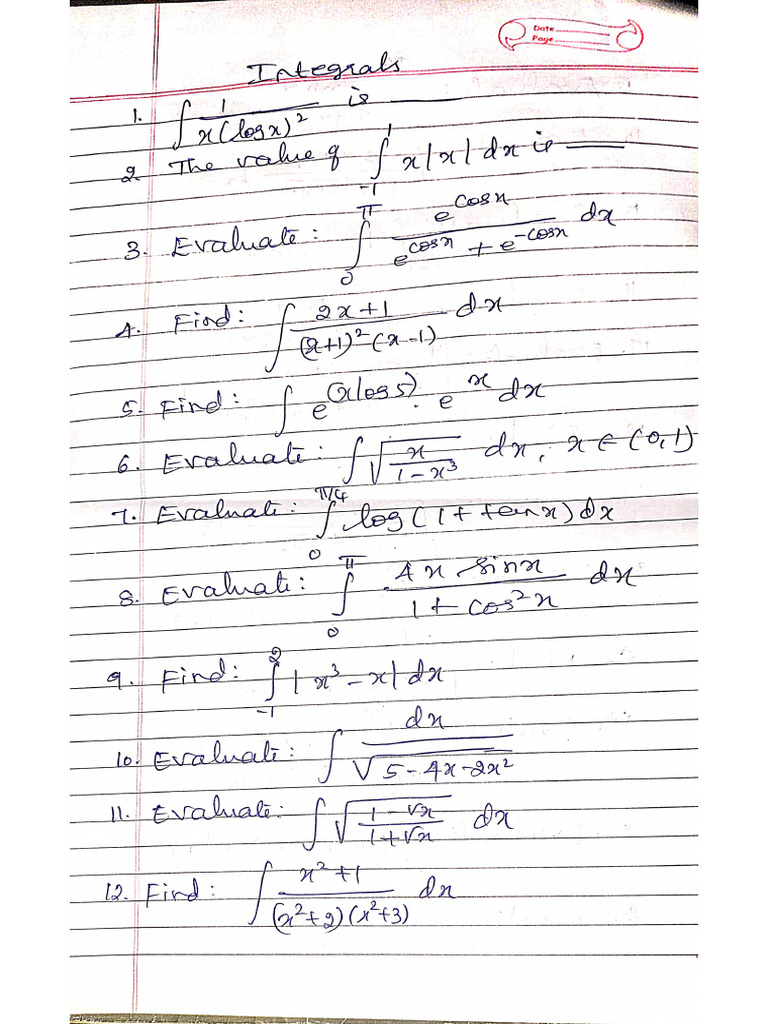 Date
Page
Integrals
1. ∫ 1/(x(logx)²) is ______
2. The value of ∫₋₁¹ x|x| dx is ____
3. Evaluate: ∫₀^π e^(cosx)/(e^(cosx) + e^(-cosx)) dx
4. Find: ∫ (2x+1)/((x+1)²(x-1)) dx
5. Find: ∫ e^(xlog5) . e^x dx
6. Evaluate: ∫ √(x/(1-x³)) dx, x ∈ (0,1)
7. Evaluate: ∫₀^(π/4) log(1+tanx)dx
8. Evaluate: ∫₀^π (4x sinx)/(1+cos²x) dx
9. Find: ∫₋₁² |x³-x| dx
10. Evaluate: ∫ dx/√(5-4x-2x²)
11. Evaluate: ∫ √((1-√x)/(1+√x)) dx
12. Find: ∫ (x²+1)/((x²+2)(x²+3)) dx